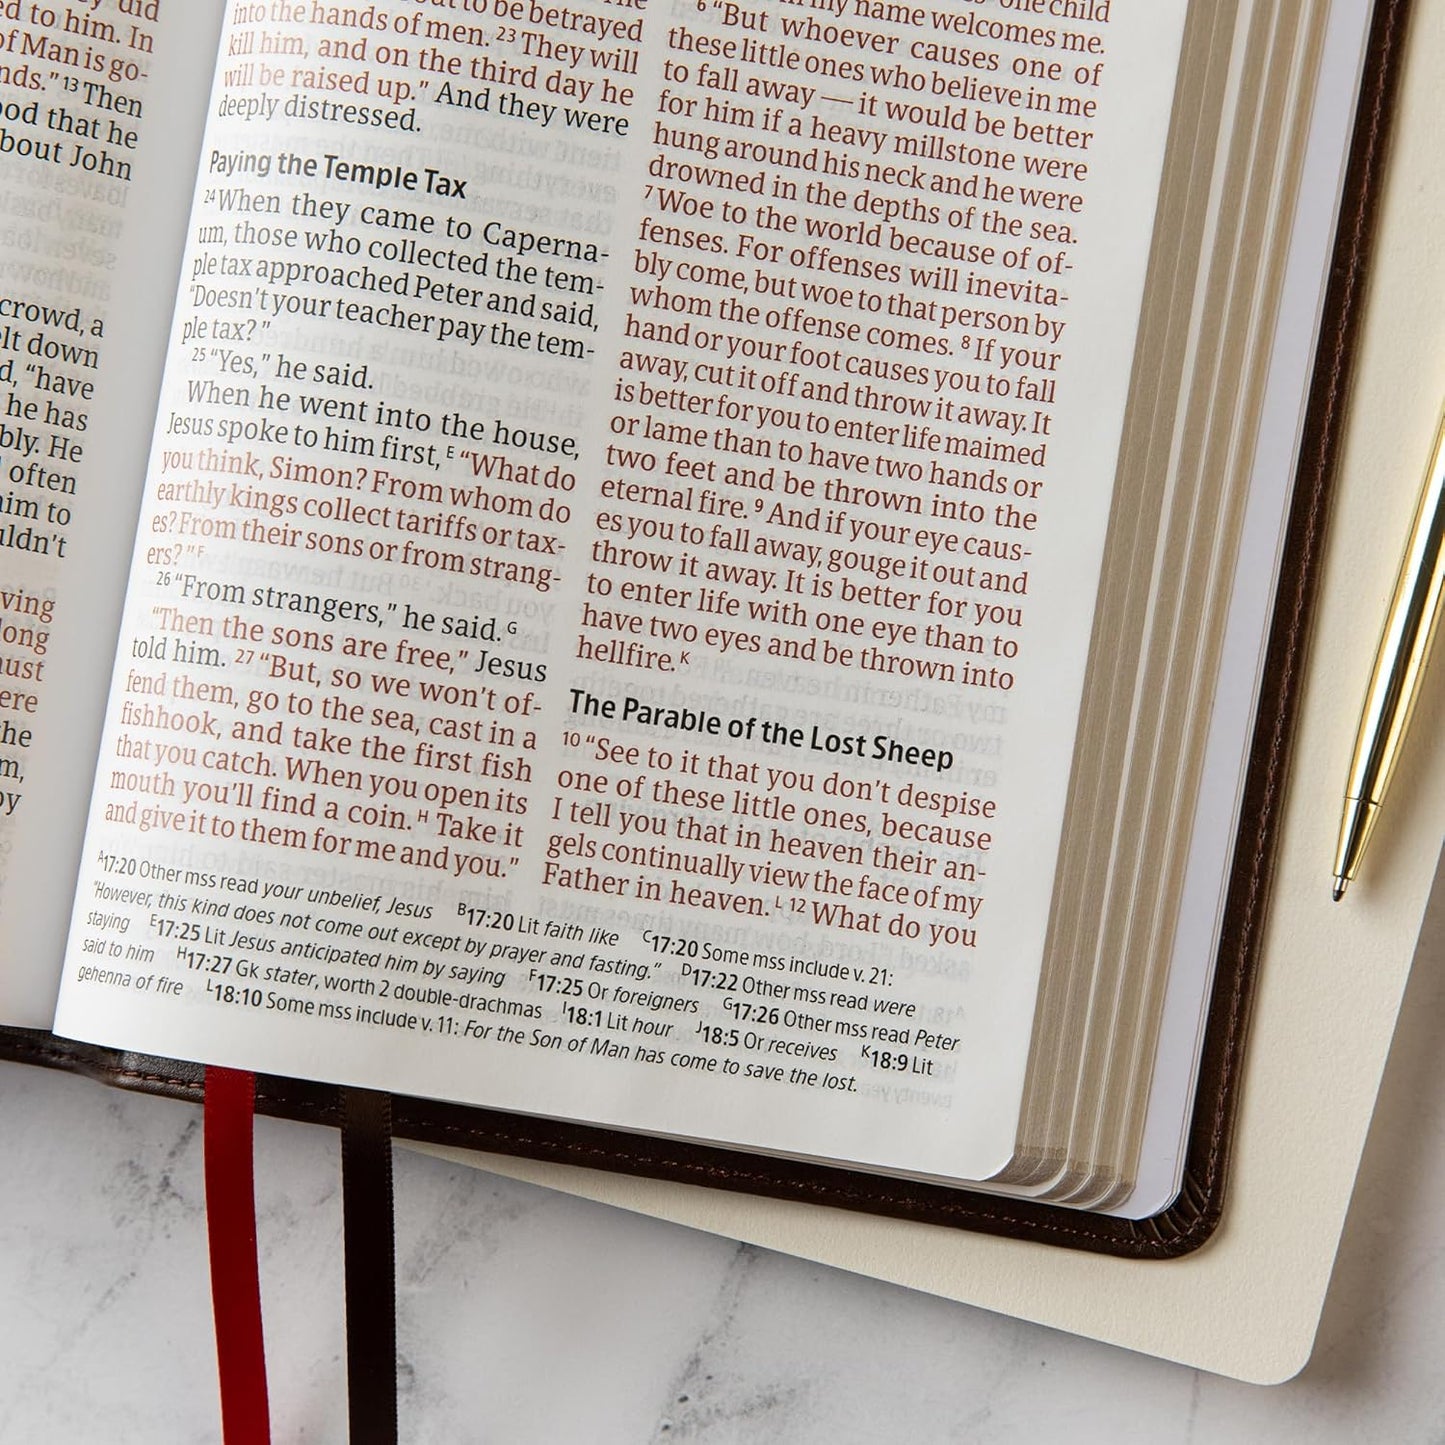 did
ed to him. In
of Man is go-
nds." 13 Then
ood that he
bout John
crowd, a
elt down
d, “have
he has
bly. He
often
him to
uldn't
ving
long
must
ere
the
m,
by
out to be betrayed
into the hands of men. 23 They will
kill him, and on the third day he
will be raised up.” And they were
deeply distressed.
Paying the Temple Tax
24 When they came to Caperna-
um, those who collected the tem-
ple tax approached Peter and said,
“Doesn't your teacher pay the tem-
ple tax?”
25 “Yes,” he said.
When he went into the house,
Jesus spoke to him first, E “What do
you think, Simon? From whom do
earthly kings collect tariffs or tax-
es? From their sons or from strang-
ers?” F
26 “From strangers,” he said. G
“Then the sons are free,” Jesus
told him. 27 “But, so we won't of-
fend them, go to the sea, cast in a
fishhook, and take the first fish
that you catch. When you open its
mouth you'll find a coin. H Take it
and give it to them for me and you.”
one child
in my name welcomes me.
6 “But whoever causes one of
these little ones who believe in me
to fall away — it would be better
for him if a heavy millstone were
hung around his neck and he were
drowned in the depths of the sea.
7 Woe to the world because of of-
fenses. For offenses will inevita-
bly come, but woe to that person by
whom the offense comes. 8 If your
hand or your foot causes you to fall
away, cut it off and throw it away. It
is better for you to enter life maimed
or lame than to have two hands or
two feet and be thrown into the
eternal fire. 9 And if your eye caus-
es you to fall away, gouge it out and
throw it away. It is better for you
to enter life with one eye than to
have two eyes and be thrown into
hellfire. K
The Parable of the Lost Sheep
10 “See to it that you don't despise
one of these little ones, because
I tell you that in heaven their an-
gels continually view the face of my
Father in heaven. L 12 What do you
A 17:20 Other mss read your unbelief, Jesus B 17:20 Lit faith like C 17:20 Some mss include v. 21:
“However, this kind does not come out except by prayer and fasting.” D 17:22 Other mss read were
staying E 17:25 Lit Jesus anticipated him by saying F 17:25 Or foreigners G 17:26 Other mss read Peter
said to him H 17:27 Gk stater, worth 2 double-drachmas I 18:1 Lit hour J 18:5 Or receives K 18:9 Lit
gehenna of fire L 18:10 Some mss include v. 11: For the Son of Man has come to save the lost.